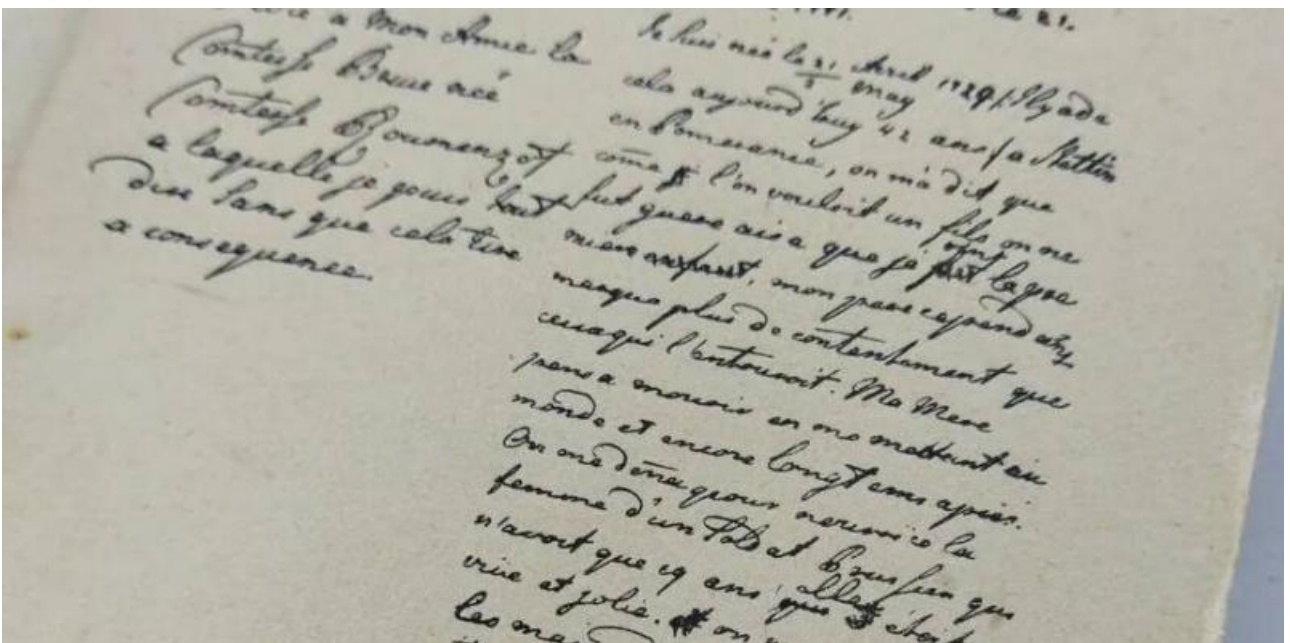 a Mon Amie la
Comtesse Bruce née
Comtesse Roumenzof
a laquelle je peus tout
dire sans que cela tire
a consequence.
le 21.
Je suis née le 21 Avril 1729 / Il y a de
2 May
cela aujourd'huy 42 ans / a Stettin
en Pomeranie, on m'a dit que
come l'on vouloit un fils on ne
fut guere aise que je la pre
miere, mon pere cependant y
marqua plus de contentement que
ceux qui l'entouroit. Ma Mere
pensa mourir en me mettant au
monde et encore longtems apres.
On me dona pour nourice la
femme d'un Soldat Prussien qui
n'avoit que 19 ans elle étoit
vive et jolie. on
les